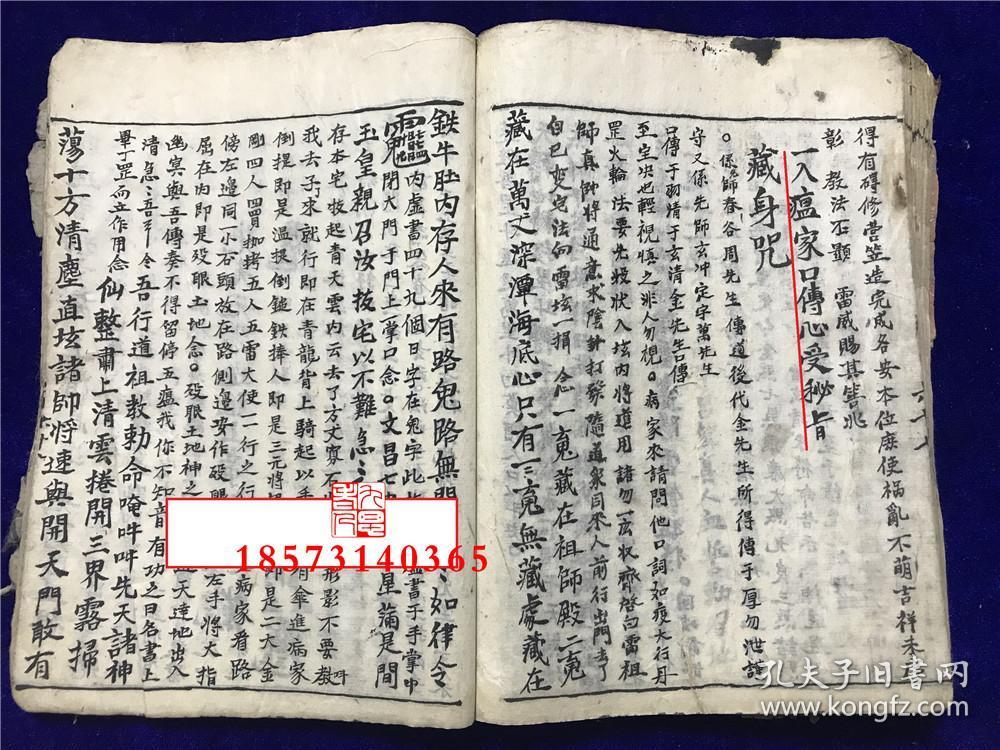 得有碍修营竖造完成各安本位庶使祸亂不萌吉祥未
彰 教法不顯 雷威賜其
一入瘟家口傳心受秘旨
藏身咒
係師春谷周先生傳道後代金先生所得傳于厚勿泄謹
守又係先師玄冲定字萬先生
傳于羽靖于玄清金先生口傳
至宝尖也輕視慎之非人勿視。病家來請問他口詞如疫大行丹
罡火輪 法要先牧狀入垓内將道用 諸勿一宏狀齊啓白雷祖
師真帥將 通意求陰卦打發 隨道衆同來人前行出門去了
自己变宅法向雷垓一揖 念一䰟藏在祖師殿二䰟
藏在萬丈深潭海底心只有三䰟無藏處藏在
鉄牛肚内存人來有路鬼路無門
内虚書四十九個日字在鬼字此
鬼閉大門于門上一掌口念。文昌七
星蒲是間
玉皇親召汝 抜宅以不難急
如律令
存本宅牧起青天雲内云去了方丈
形影不要教
我去子丁求就行即在青龍背上騎起以手
有傘進病家
倒提即是溫捉倒鎚鉄捧人即是三元將
即是二大金
剛四人四買枷拷五人五雷大使一行之行
病家看路
傍左邊同一小石頭放在路側邊安作砓眼
左手將大指
屈在内即是砓眼土地念。砓眼土地神之
天達地出入
幽冥與吾傳奏不得留停五瘟我你不知音有功之日名書上
清急〻吾奉令吾行道祖教勅命唵吽吽先天諸神
畢丁罡而立作用念 仙整肅上清雲捲開三界霧掃
蕩十方清塵直垓諸師将速與開天門敢有
18573140365
孔夫子旧书网
www.kongfz.com